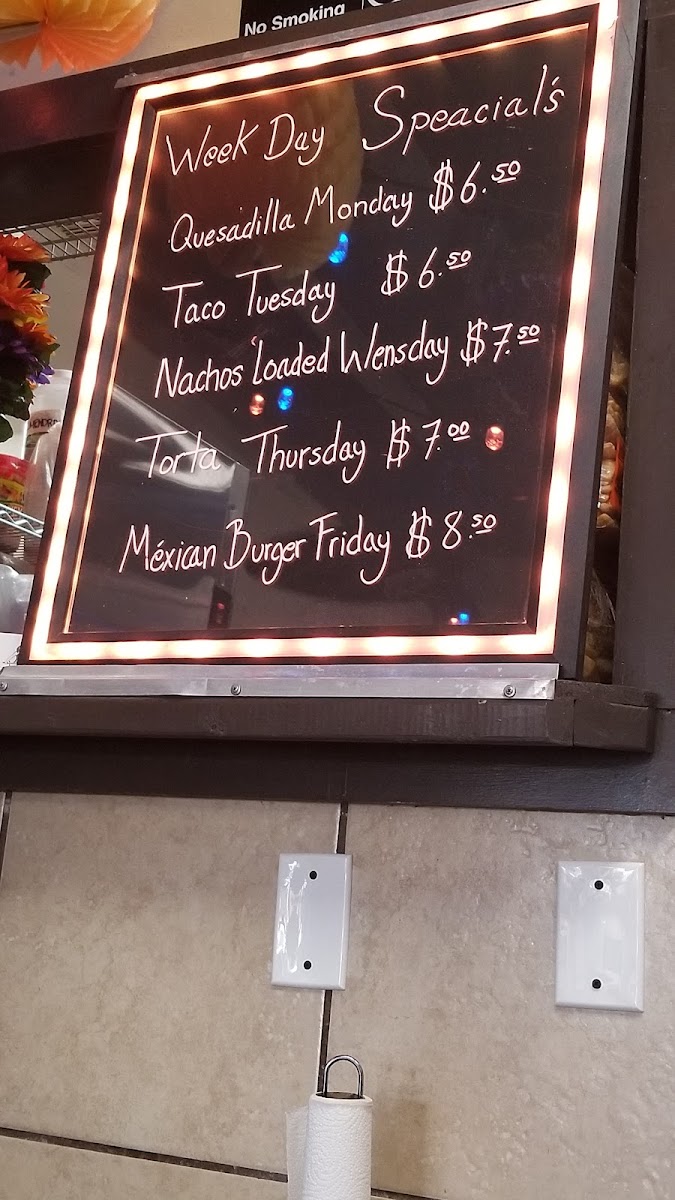 No Smoking
Week Day Speacial's
Quesadilla Monday $6.50
Taco Tuesday $6.50
Nachos Loaded Wensday $7.50
Torta Thursday $7.00
Méxican Burger Friday $8.50